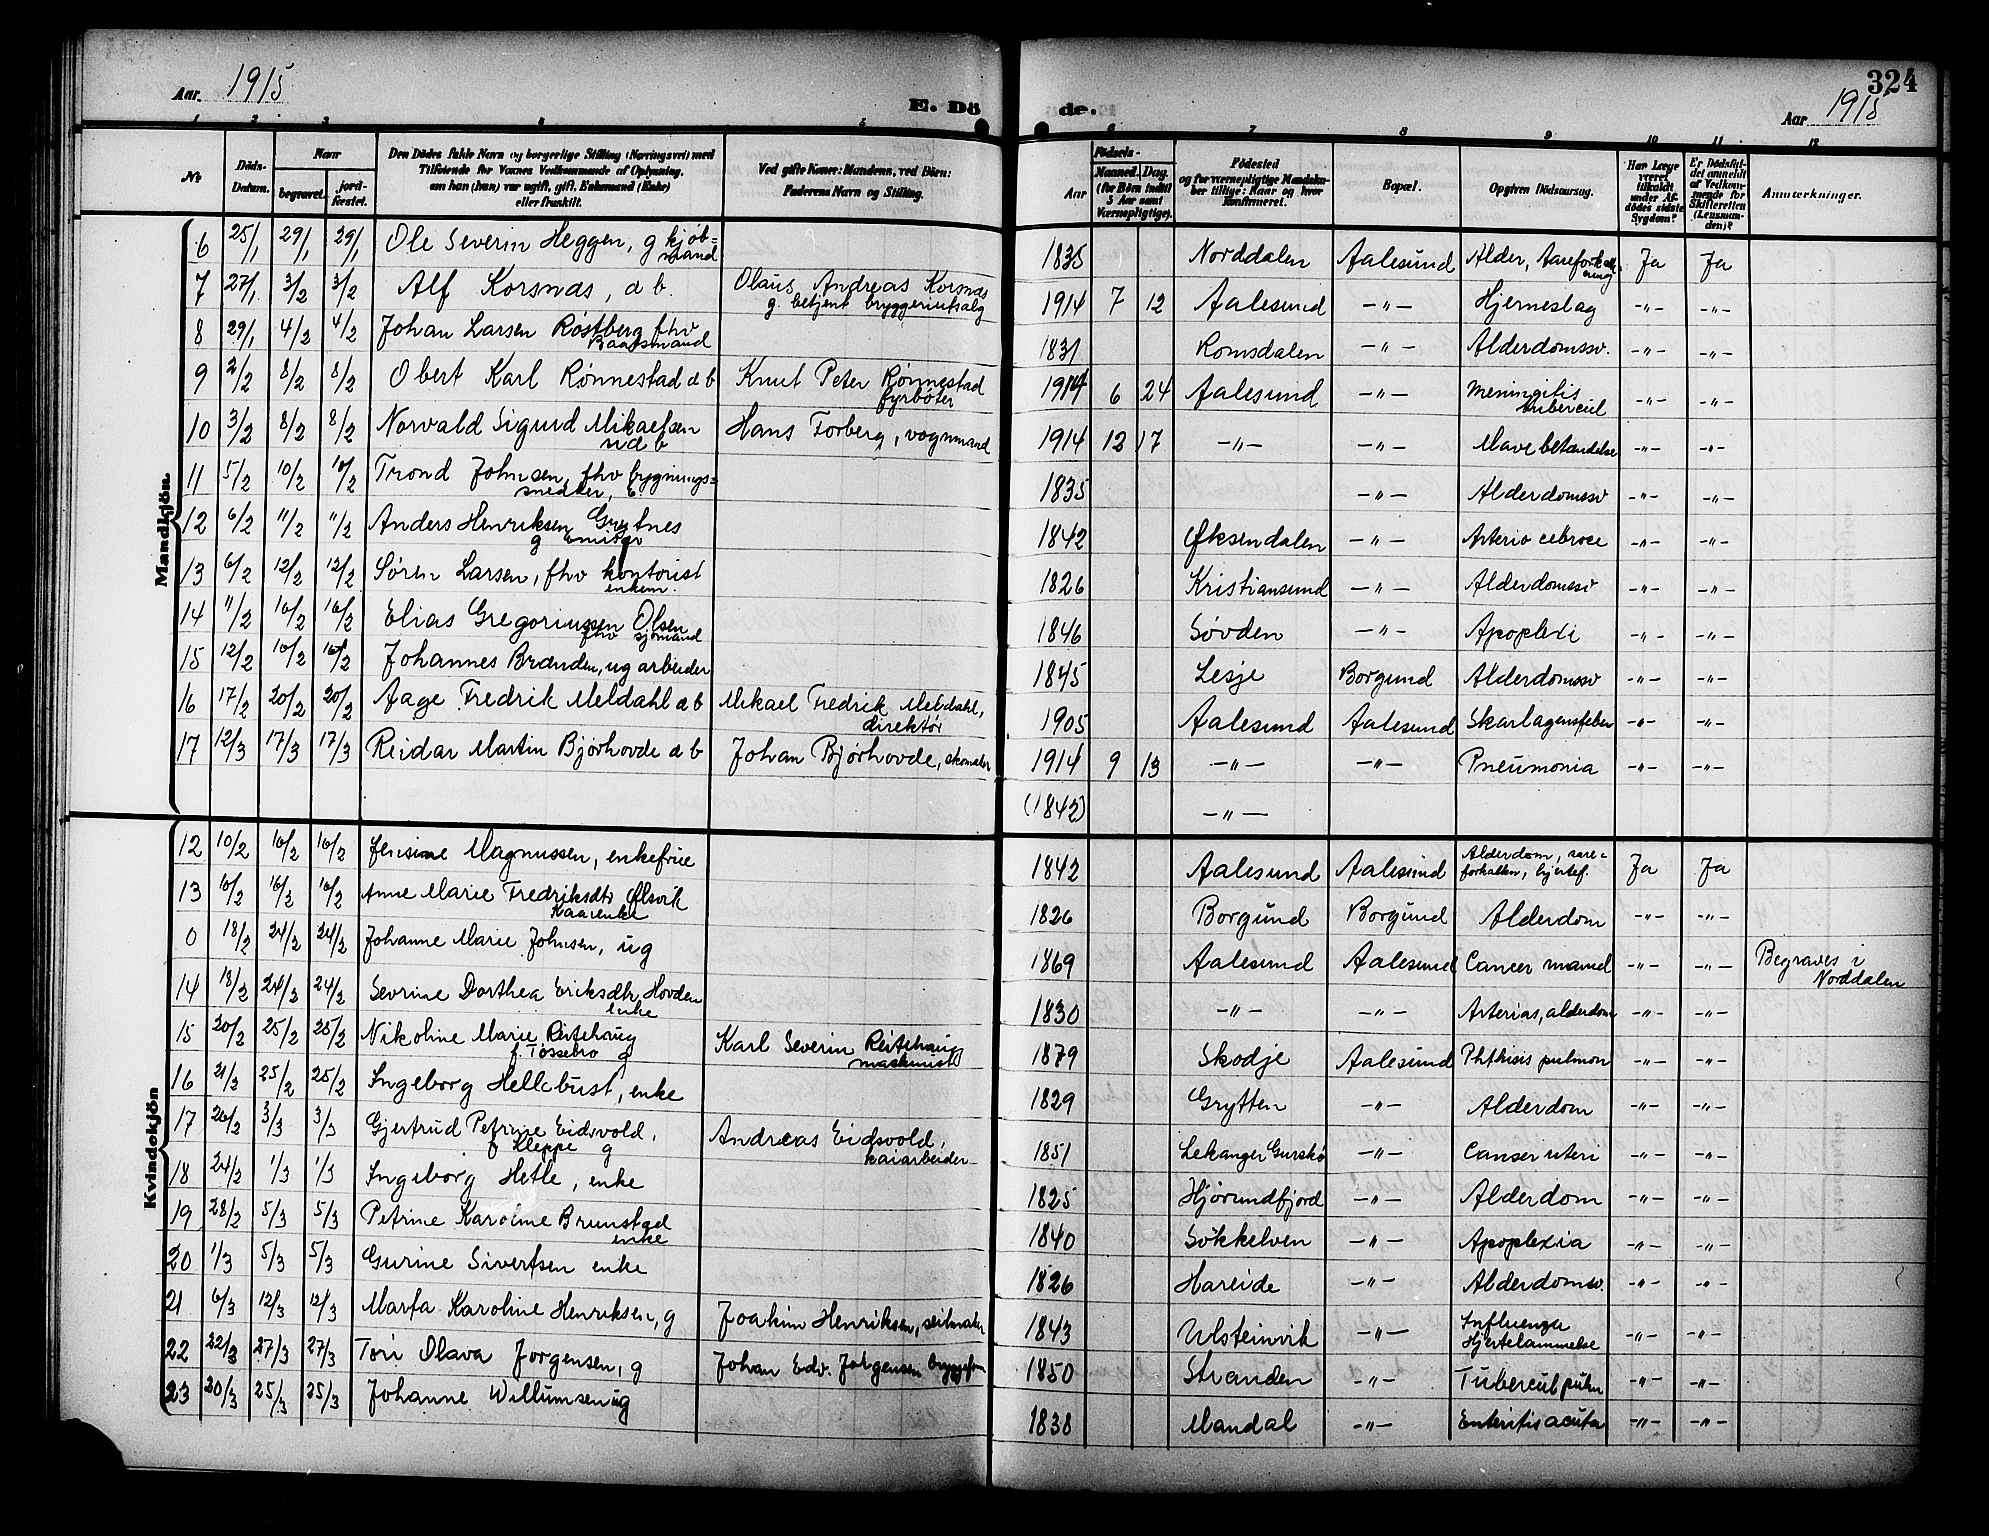 Aar 1915
E. Dö de.
324
Aar 1915
1 2 3 4 5 6 7 8 9 10 11 12
No
Döds-Datum.
Naar begravet. jordfæstet.
Den Dödes fulde Navn og borgerlige Stilling (Næringsvei) med Tilföiende for Voxnes Vedkommende af Oplysning, om han (hun) var ugift, gift, Enkemand (Enke) eller fraskilt.
Ved gifte Koner: Mandens, ved Börn: Faderens Navn og Stilling.
Födsels-
Aar Maaned. Dag. (for Børn indtil 5 Aar samt Værnepligtige).
Födested og for værnepligtige Mandskaber tillige: Naar og hvor konfirmeret.
Bopæl.
Opgiven Dödsaarsag.
Har Læge været tilkaldt under Afdödes sidste Sygdom?
Er Dödsfaldet anmeldt af Vedkommende for Skifteretten (Lensmanden)?
Anmærkninger.
Mandkjön.
6 25/1 29/1 29/1 Ole Severin Heggen, g kjøb=mand 1835 Norddalen Aalesund Alder, Aareforkalkning Ja Ja
7 27/1 3/2 3/2 Alf Korsnæs, d b. Olaus Andreas Korsnæs g. betjent bryggeriutsalg 1914 7 12 Aalesund -"- Hjerneslag -"- -"-
8 29/1 4/2 4/2 Johan Larsen Røstberg fhv Baadsmand 1831 Romsdalen -"- Alderdomssv. -"- -"-
9 2/2 8/2 8/2 Obert Karl Rønnestad d b Knut Peter Rønnestad fyrbøter 1914 6 24 Aalesund -"- Meningitis tubercul -"- -"-
10 3/2 8/2 8/2 Norvald Sigurd Mikaelsen ud b Hans Torberg, vognmand 1914 12 17 -"- -"- Mave betændelse -"- -"-
11 5/2 10/2 10/2 Trond Johnsen, fhv bygnings=snedker, E 1835 -"- Alderdomssv -"- -"-
12 6/2 11/2 11/2 Anders Henriksen g 1842 Øksendalen -"- Arterio -"- -"-
13 6/2 12/2 12/2 Søren Larsen, fhv kontorist enkem. 1826 Kristiansund -"- Alderdomssv -"- -"-
14 11/2 16/2 16/2 Elias Gregoriussen Olsen fhv sjømand 1846 Søvden -"- Apoplexi -"- -"-
15 12/2 16/2 16/2 Johannes Brænden, ug arbeider 1845 Lesje Borgund Alderdomssv -"- -"-
16 17/2 20/2 20/2 Aage Fredrik Meldahl d b Mikael Fredrik Meldahl, direktør 1905 Aalesund Aalesund Skarlagensfeber -"- -"-
17 12/3 17/3 17/3 Reidar Martin Bjørhovde d b Johan Bjørhovde, skomaker 1914 9 13 -"- -"- Pneumonia -"- -"-
(1842) -"-
Kvindekjön
12 10/2 16/2 16/2 Jensine Magnussen, enkefrue 1842 Aalesund Aalesund Alderdom, aare=forkalkn, hjertef. Ja Ja
13 10/2 16/2 16/2 Anne Marie Fredriksdtr Ølsvik Kaarenke 1826 Borgund Borgund Alderdom -"- -"-
0 18/2 24/2 24/2 Johanne Marie Johnsen, ug 1869 Aalesund Aalesund Cancer -"- -"- Begraves i Norddalen
14 18/2 24/2 24/2 Sevrine Dorthea Eriksdtr Hovden Enke 1830 -"- -"- Arterios, alderdom -"- -"-
15 20/2 25/2 25/2 Nikoline Marie Reitehaug f. Tøssebro g Karl Severin Reitehaug maskinist 1879 Skodje Aalesund Phthisis pulmon -"- -"-
16 21/2 25/2 25/2 Ingeborg Hellebust, enke 1829 Grytten -"- Alderdom -"- -"-
17 26/2 3/3 3/3 Gjertrud Petrine Eidsvold, f Kleppe g Andreas Eidsvold, kaiarbeider 1851 Lekanger Gurskø -"- Canser uteri -"- -"-
18 24/2 1/3 1/3 Ingeborg Hetle, enke 1825 Hjørundfjord -"- Alderdom -"- -"-
19 28/2 5/3 5/3 Petrine Karoline Brunstad enke 1840 Søkkelven -"- Apoplexia -"- -"-
20 1/3 5/3 5/3 Gurine Sivertsen enke 1826 Hareide -"- Alderdomsv. -"- -"-
21 6/3 12/3 12/3 Marta Karoline Henriksen, g Joakim Henriksen, seilmaker 1843 Ulsteinvik -"- Influenza Hjertelammelse -"- -"-
22 22/3 27/3 27/3 Tøri Olava Jørgensen, g Johan Edv. Jørgensen 1850 Stranden -"- Tubercul pulm -"- -"-
23 20/3 25/3 25/3 Johanne Willumsen ug 1838 Mandal -"- Enteritis acuta -"- -"-